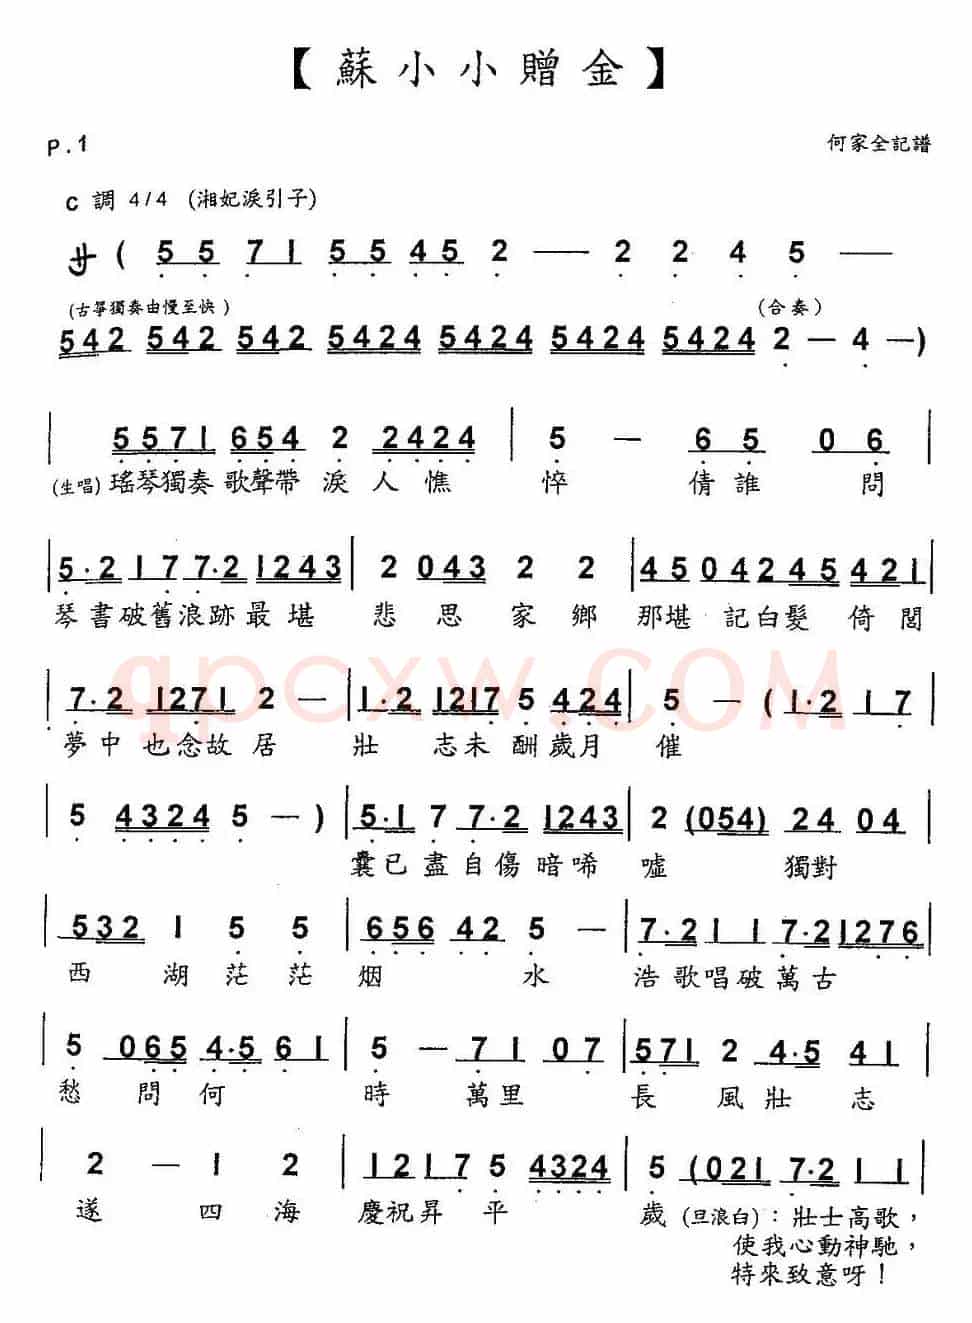 【 蘇 小 小 贈 金 】
P.1
何家全記譜
C 調 4/4 (湘妃淚引子)
サ ( 5 5 7 1 5 5 4 5 2 — 2 2 4 5 —
(古箏獨奏由慢至快) (合奏)
542 542 542 5424 5424 5424 5424 2 — 4 — )
| 5571 654 2 2424 | 5 — 6 5 0 6 |
(生唱) 瑤琴獨奏 歌聲帶 淚 人 憔 悴 倩誰 問
| 5·2 17 7·2 1243 | 2 043 2 2 | 45042454 21 |
琴書破舊浪跡最堪 悲 思 家 鄉 那堪 記白髮 倚 閭
qpcxw.com
| 7·2 1271 2 — | 1·2 1217 5 424 | 5 — ( 1·2 17 |
夢中也念故居 壯 志未 酬歲月 催
| 5 4324 5 — ) | 5·1 7 7·2 1243 | 2 (054) 24 04 |
囊已盡自傷暗唏 噓 獨對
| 532 1 5 5 | 656 42 5 — | 7·2 1 1 7·2 1276 |
西 湖 茫 茫 烟 水 浩歌唱破萬古
| 5 065 4·5 61 | 5 — 71 07 | 571 2 4·5 41 |
愁 問 何 時 萬里 長 風壯 志
| 2 — 1 2 | 12 17 5 4324 | 5 (021 7·2 1 1 |
遂 四 海 慶祝昇 平 歲 (旦浪白)：壯士高歌，
使我心動神馳，
特來致意呀！